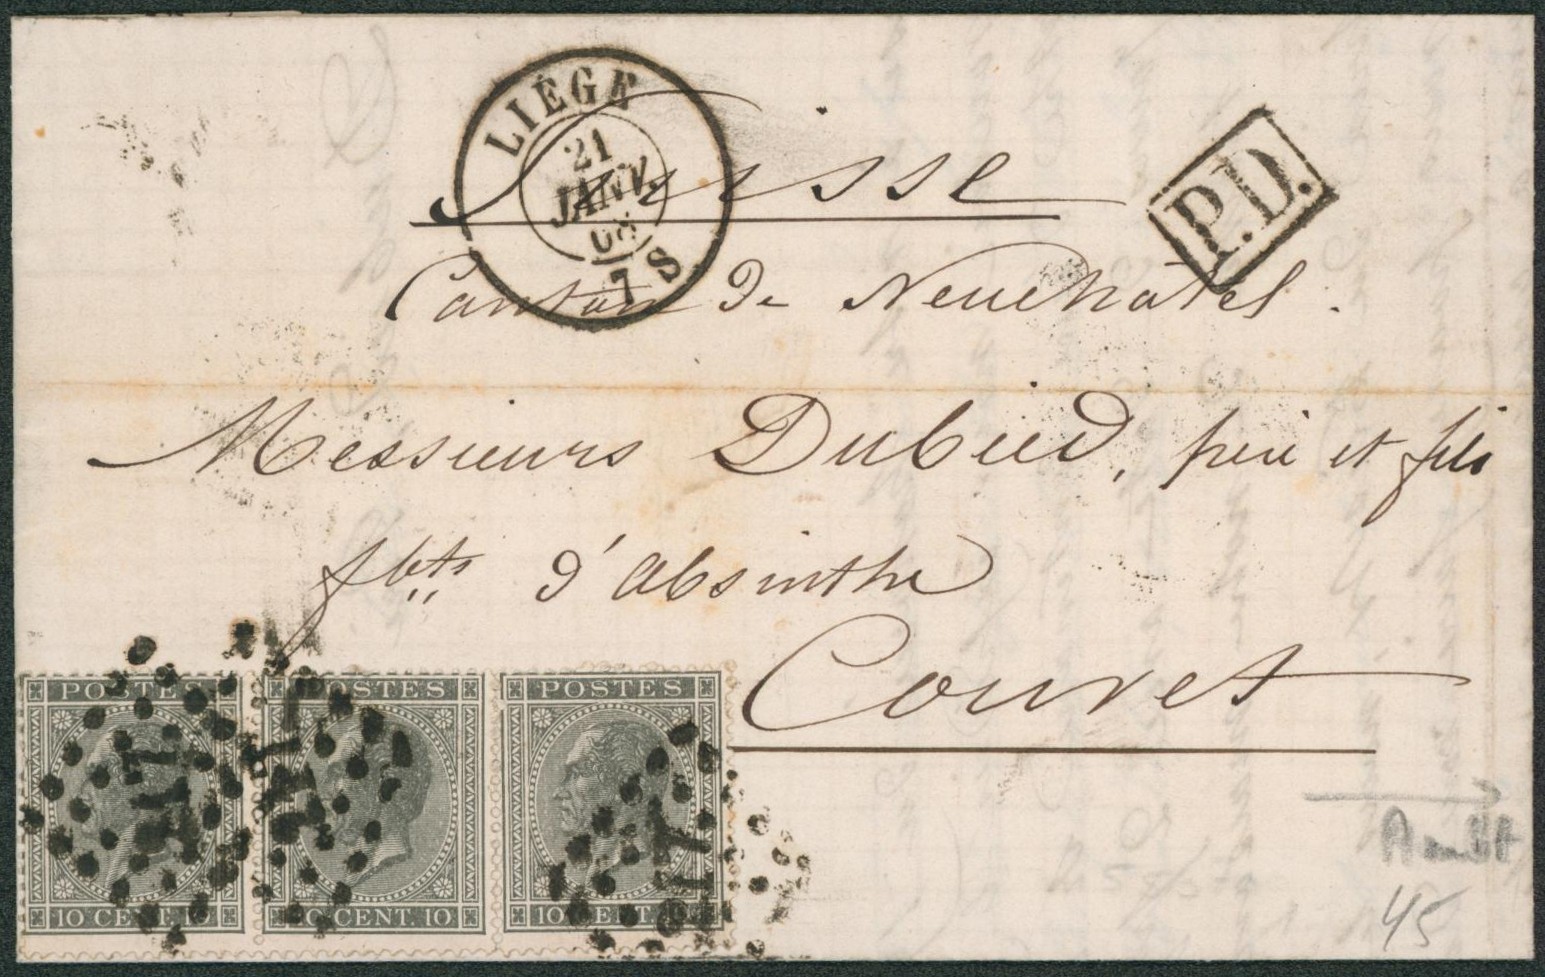 LIÈGE
21
JANV.
68
7 S
P.D.
Suisse
Canton de Neuchatel.
Messieurs Dubied, père et fils
fbts d'absinthe
Couvet
POSTES POSTES POSTES
217
10 CENT. 10 10 CENT. 10 10 CENT.
45